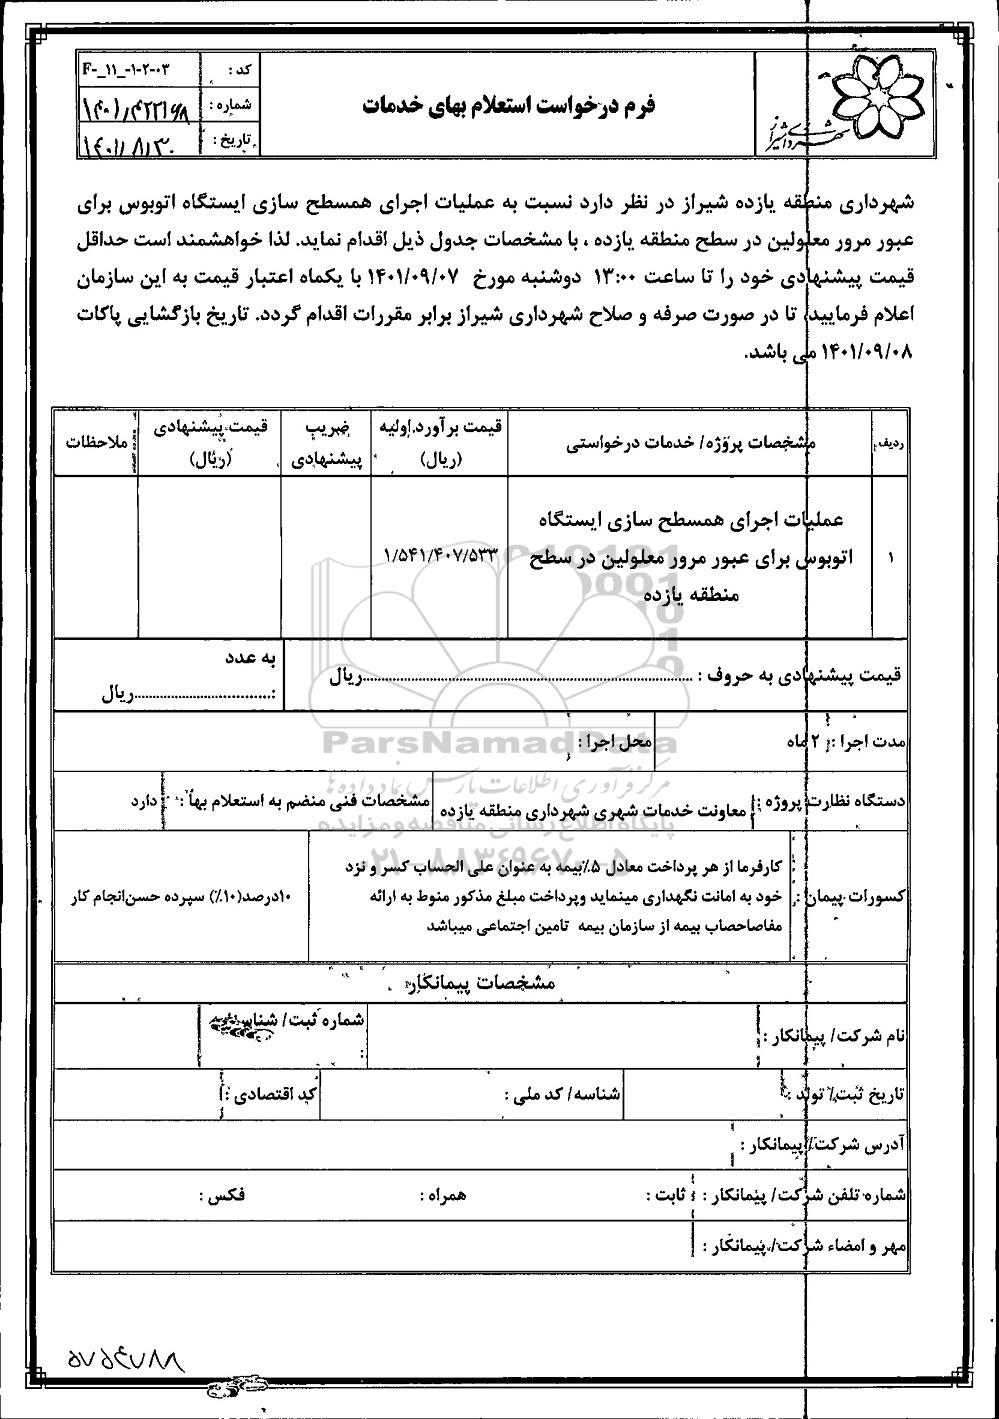 شهرداری شیراز
فرم درخواست استعلام بهای خدمات
کد : F-_11_-۱-۲-۰۳
شماره :
تاریخ : ۱۴۰۱/۸/۳۰
شهرداری منطقه یازده شیراز در نظر دارد نسبت به عملیات اجرای همسطح سازی ایستگاه اتوبوس برای
عبور مرور معلولین در سطح منطقه یازده ، با مشخصات جدول ذیل اقدام نماید. لذا خواهشمند است حداقل
قیمت پیشنهادی خود را تا ساعت ۱۳:۰۰ دوشنبه مورخ ۱۴۰۱/۰۹/۰۷ با یکماه اعتبار قیمت به این سازمان
اعلام فرمایید، تا در صورت صرفه و صلاح شهرداری شیراز برابر مقررات اقدام گردد. تاریخ بازگشایی پاکات
۱۴۰۱/۰۹/۰۸ می باشد.
ردیف
مشخصات پروژه/ خدمات درخواستی
قیمت برآورد اولیه
(ریال)
ضریب
پیشنهادی
قیمت پیشنهادی
(ریال)
ملاحظات
۱
عملیات اجرای همسطح سازی ایستگاه
اتوبوس برای عبور مرور معلولین در سطح
منطقه یازده
۱/۵۴۱/۴۰۷/۵۳۳
قیمت پیشنهادی به حروف : ....................ریال
به عدد
:....................ریال
مدت اجرا : ۲ ماه
محل اجرا :
دستگاه نظارت پروژه : معاونت خدمات شهری شهرداری منطقه یازده
مشخصات فنی منضم به استعلام بها : دارد
کسورات پیمان :
کارفرما از هر پرداخت معادل ۵٪بیمه به عنوان علی الحساب کسر و نزد
خود به امانت نگهداری مینماید وپرداخت مبلغ مذکور منوط به ارائه
مفاصاحصاب بیمه از سازمان بیمه تامین اجتماعی میباشد
۱۰درصد(۱۰٪) سپرده حسن‌انجام کار
مشخصات پیمانکار
نام شرکت/ پیمانکار :
شماره ثبت/ شناسنامه
:
تاریخ ثبت/ تولد :
شناسه/ کد ملی :
کد اقتصادی :
آدرس شرکت/ پیمانکار :
شماره تلفن شرکت/ پیمانکار : ثابت :
همراه :
فکس :
مهر و امضاء شرکت/ پیمانکار :
ParsNamadData
مرکز فرآوری اطلاعات پارس نماد داده ها
پایگاه اطلاع رسانی مناقصه و مزایده
۰۲۱-۸۸۳۴۹۶۷۰-۵